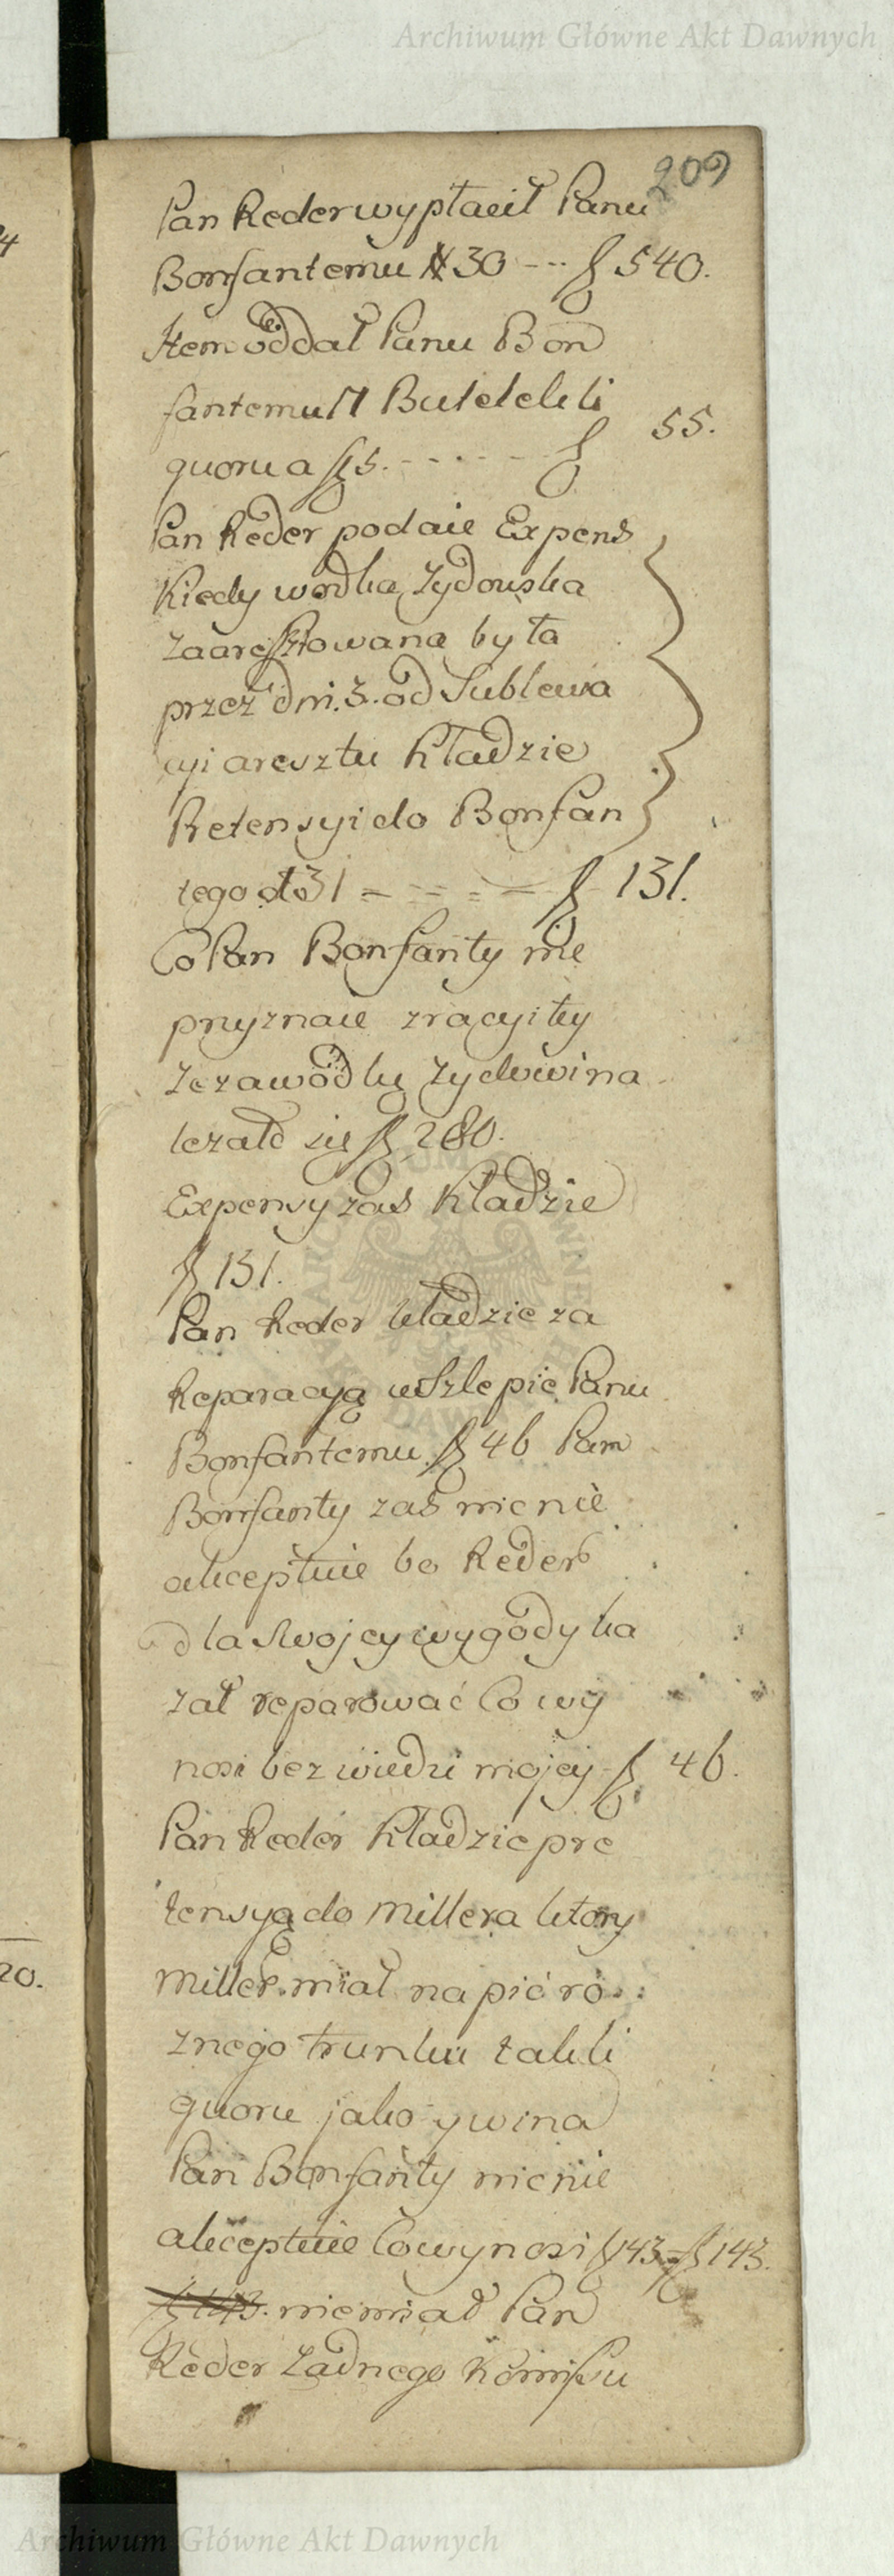 Archiwum Główne Akt Dawnych
209
Pan Reder wypłacił Panu
Bonfantemu # 30 --- f 540.
Item oddał Panu Bon
fantemu 11 Butelek li
quoru a f 5. - - - - - f 55.
Pan Reder podaie Expens
Kiedy wodka Zydowska
zaaresztowana była
przez dni. 3. od Sublewa
cyi aresztu Kładzie
Retensyi do Bonfan
tego 131 = = = = f 131.
Co Pan Bonfanty nie
przyznaie z racyi tey
Ze za wodkę Zydowi na
lezało się f 280.
Expensy zas Kładzie
f 131.
Pan Reder kładzie za
Reparacyą w Szlepie Panu
Bonfantemu f 46 Pan
Bonfanty zas nic nie
akceptuie bo Reder
dla Swojey wygody ka
zał reparować Co wy
nosi bez wiedzi mojey f 46.
Pan Reder Kładzie pre
tensyą do Millera ktory
Miller miał napić ro
znego trunku tak li
quoru jako y wina
Pan Bonfanty nic nie
akceptuie Co wynosi f 143 - f 143.
f 143. nie miał Pan
Reder Zadnego Komissu
4
20.
Archiwum Główne Akt Dawnych